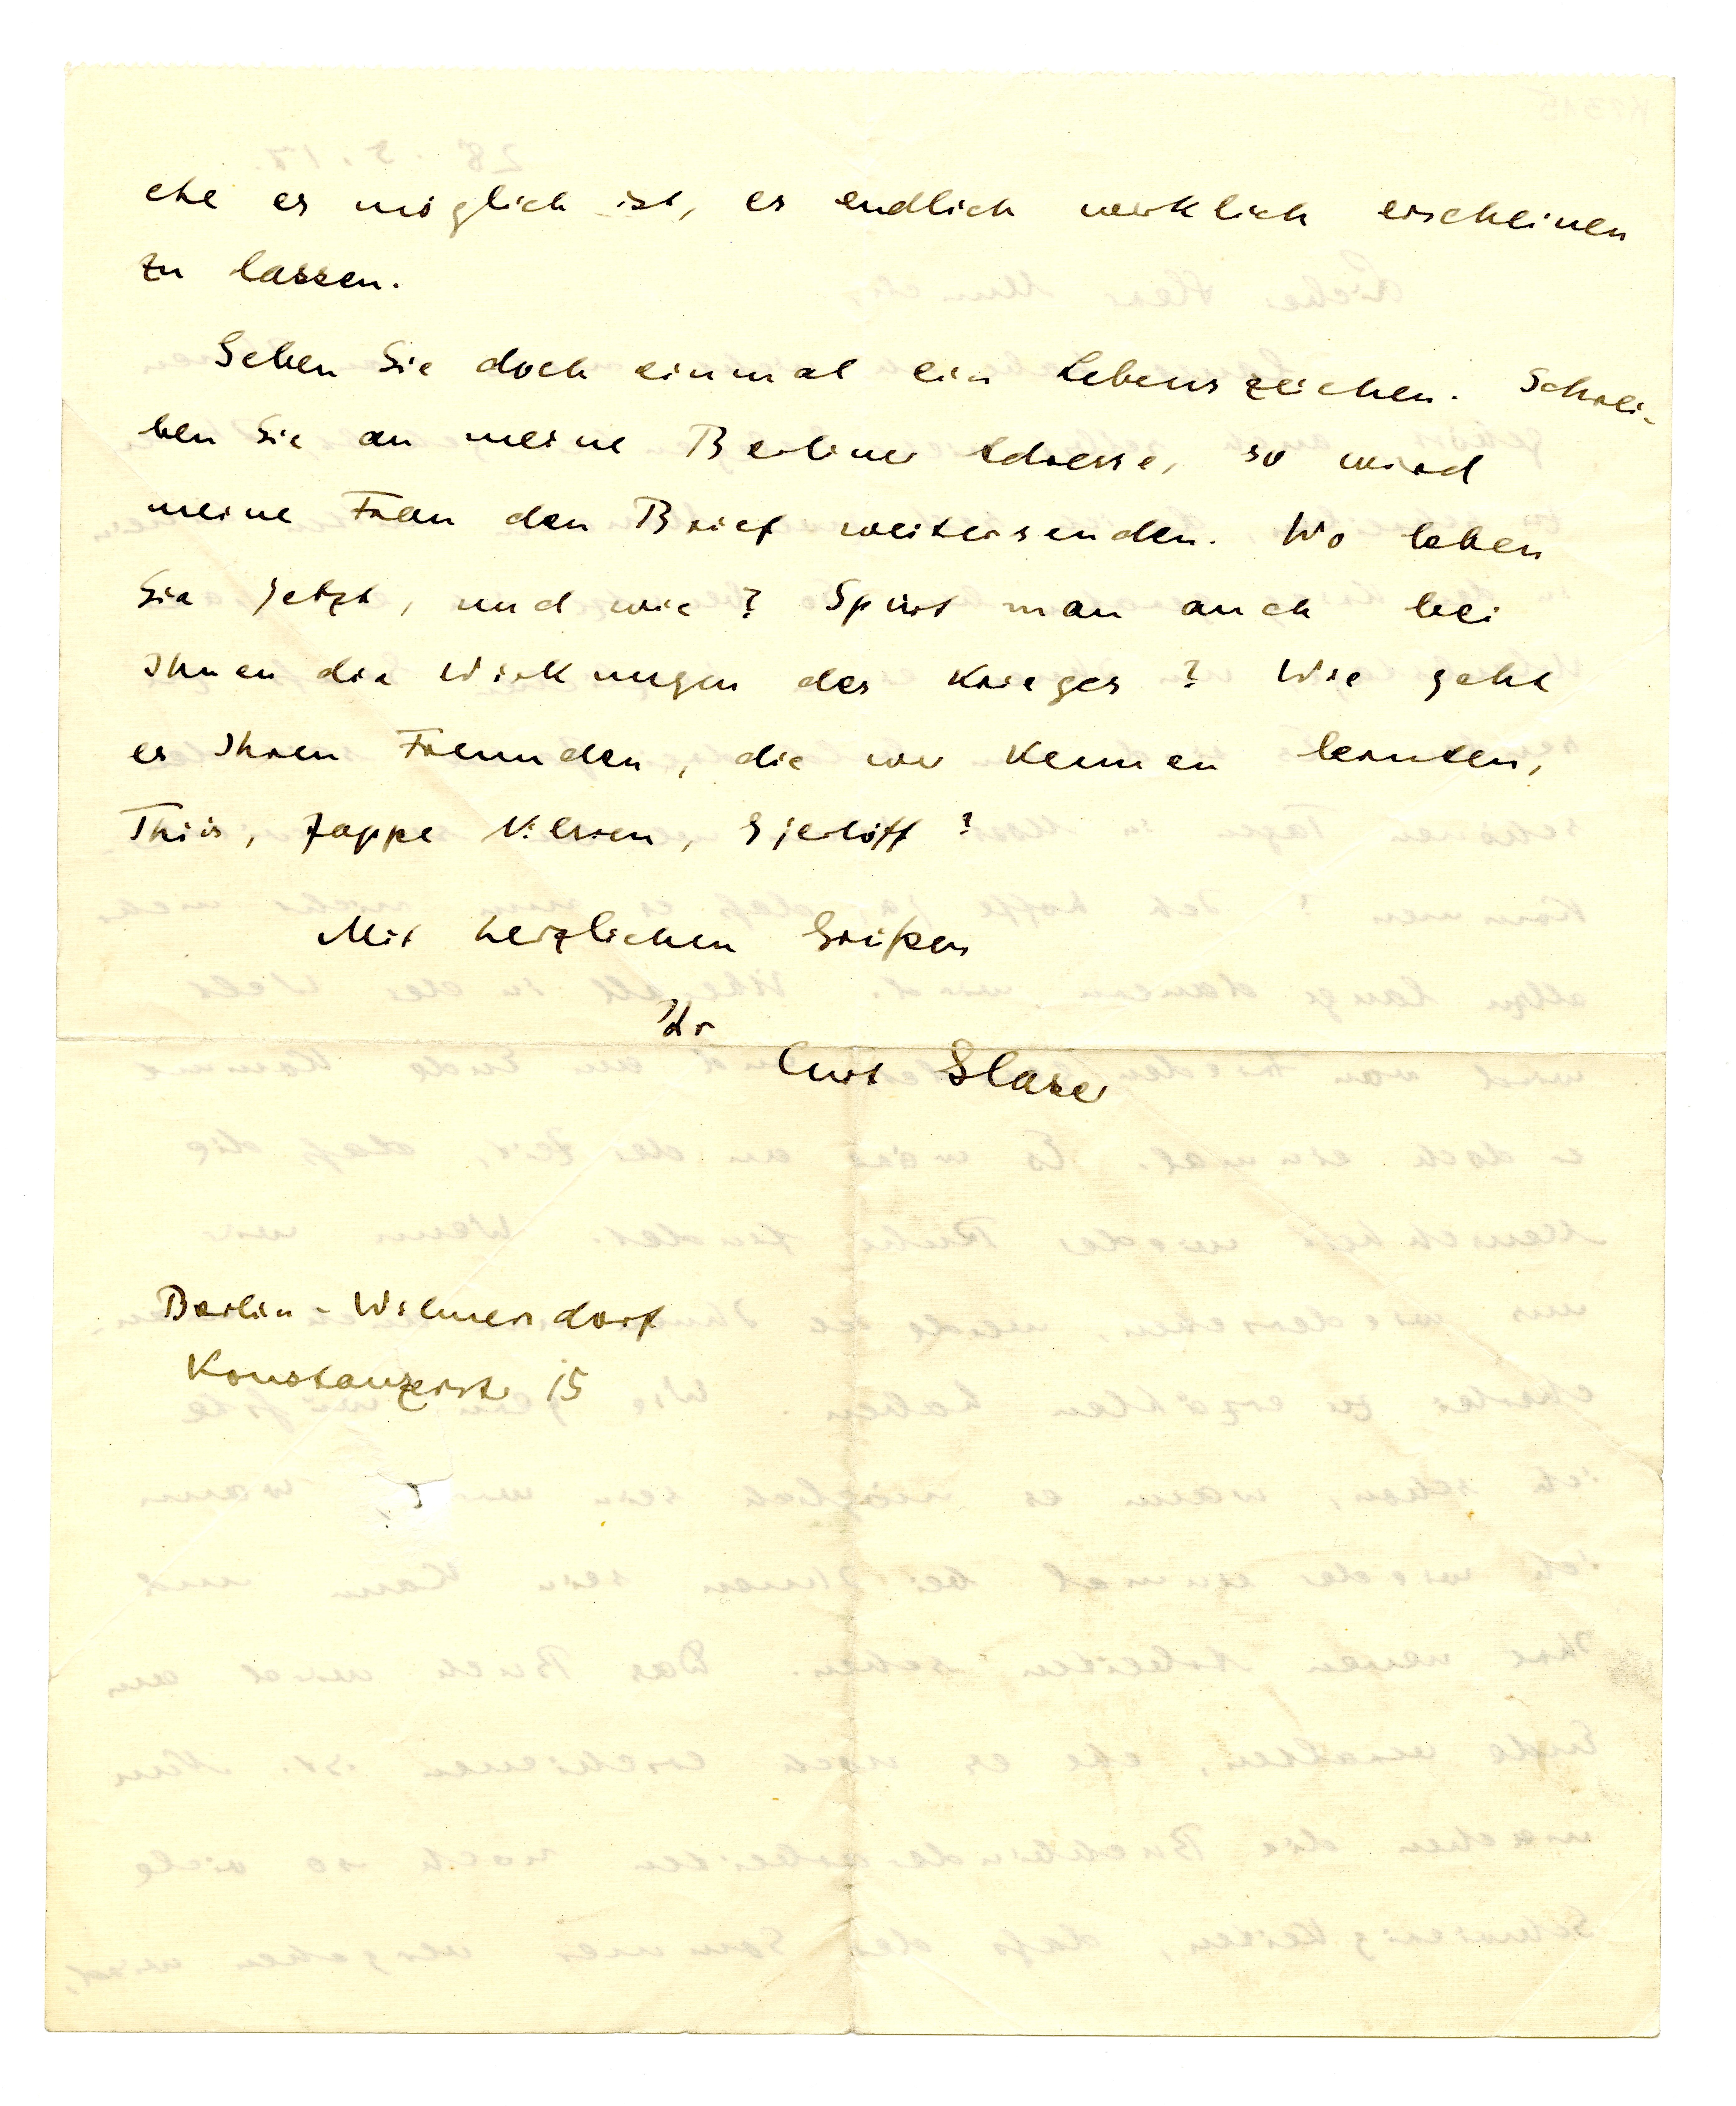 ehe es möglich ist, es endlich wirklich erscheinen
zu lassen.
Geben Sie doch einmal ein Lebenszeichen. Schrei-
ben Sie an meine Berliner Adresse, so wird
meine Frau den Brief weitersenden. Wo leben
Sie jetzt, und wie? Spürt man auch bei
Ihnen die Wirkungen des Krieges? Wie geht
es Ihren Freunden, die wir kennen lernten,
Thiis, Jappe Nilssen, Gjerlöff?
Mit herzlichen Grüßen
Ihr
Curt Glaser
Berlin-Wilmersdorf
Konstanzerstr 15